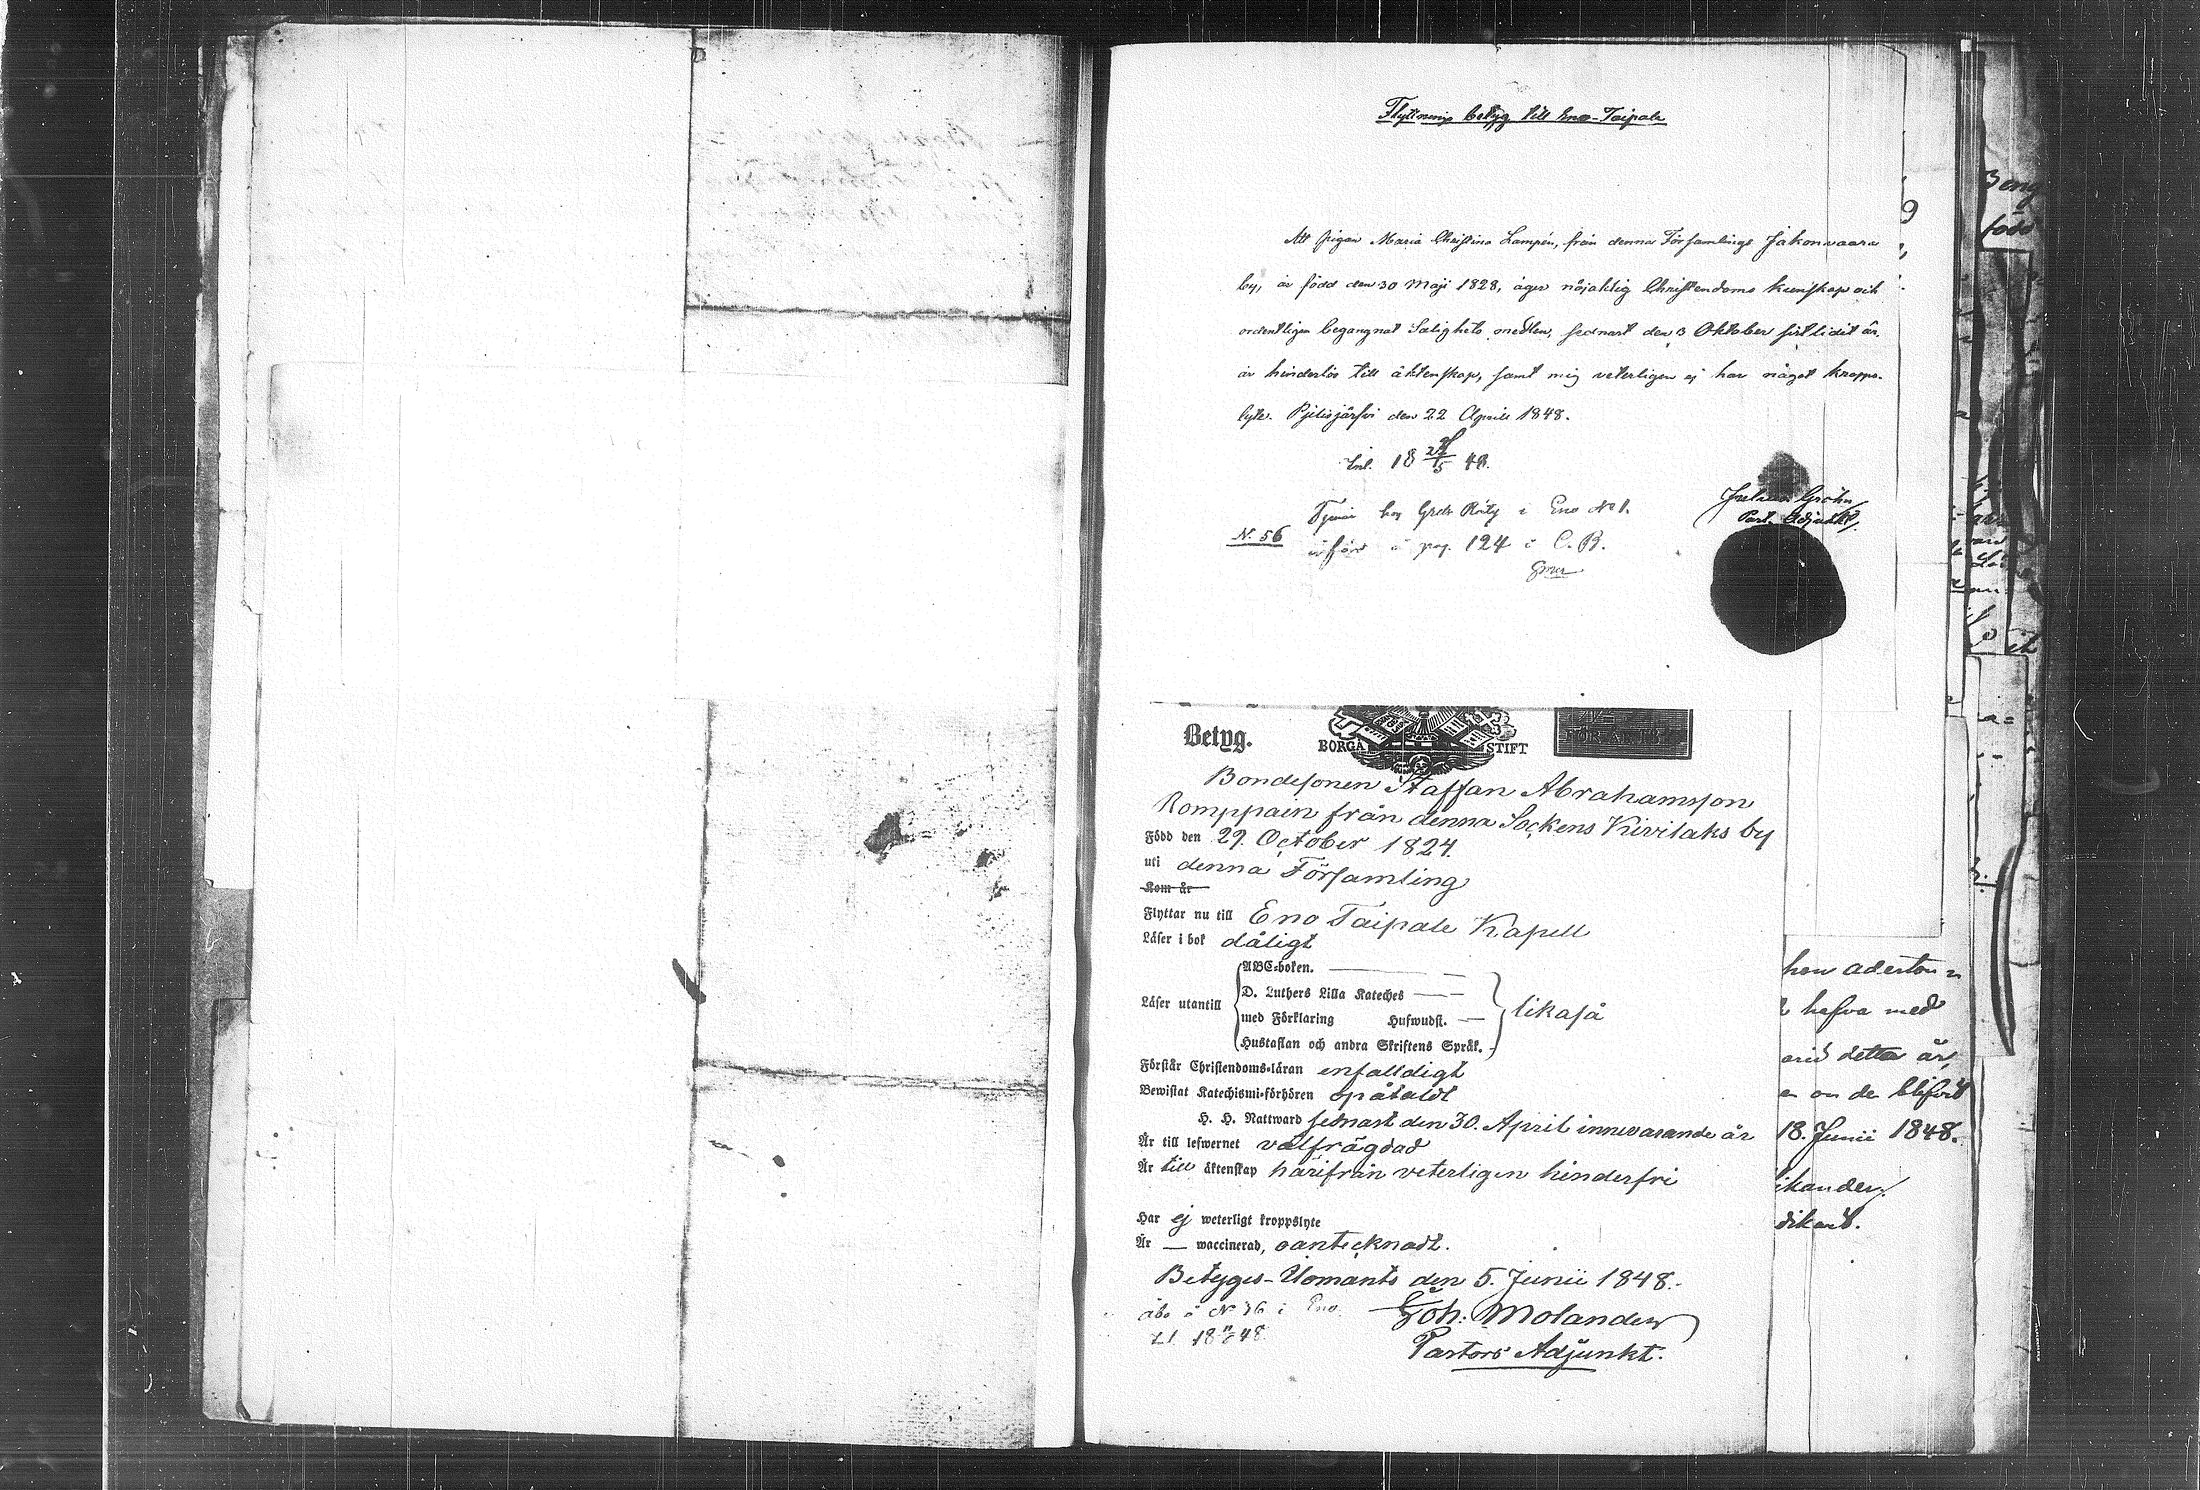 Flyttnings betyg till Eno-Taipale
Att pigan Maria Christina Lampén, från denna Församlings Jakonvaara
by, är född den 30 Maji 1828, äger nöjaktig Christendoms kunskap och
ordentligen begangnat Salighets medlen, sednast den 3 Oktober sistlidit år.
är hinderlös till äktenskap, samt mig veterligen ej har något kropps-
lyte. Pjelisjärfvi den 22 April 1848.
Inl. 18 5 48.
Julius Gröhn
Past. Adjunkt.
Tjenar hos Greta Räty i Eno No 1.
N. 56
införd å pag. 124 i C. B.
Betyg.
BORGÅ STIFT
Bondesonen Staffan Abrahamsson
Romppain från denna Sockens Kivilaks by
Född den 29. October 1824.
uti denna Församling
Kom år
Flyttar nu till Eno Taipale Kapell
Läser i bok dåligt
ABC-boken.
D. Luthers Lilla Kateches
Läser utantill
med Förklaring Hufwudst.
likaså
Hustaflan och andra Skriftens Språk.
Förstår Christendoms-läran enfalldigt
Bewistat Katechismi-förhören opåtaldt
H. H. Nattward sednast den 30. April innevarande år
Är till lefwernet välfrägdad
Är till äktenskap härifrån veterligen hinderfri
Har ej weterligt kroppslyte
Är — waccinerad, oantecknadt.
Betygas-Ilomants den 5. Junii 1848.
åbo å N 36 i Eno.
Joh. Molander
Pastors Adjunkt.
hon aderton
hafva med
detta år
18. Junii 1848.
ikander
dikant.